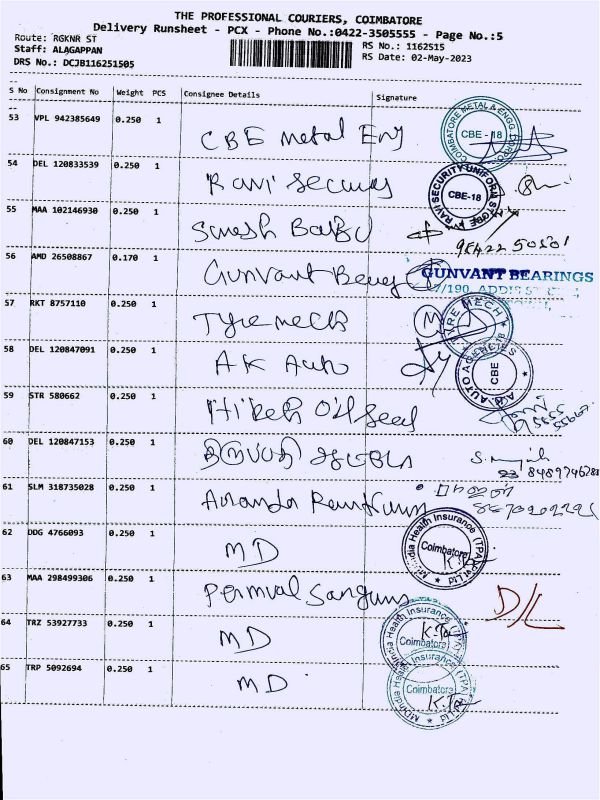 THE PROFESSIONAL COURIERS, COIMBATORE
Delivery Runsheet - PCX - Phone No.:0422-3505555 - Page No.:5
Route: RGKNR ST
Staff: ALAGAPPAN
DRS No.: DCJB116251505
RS No.: 1162515
RS Date: 02-May-2023
S No Consignment No Weight PCS Consignee Details Signature
53 VPL 942385649 0.250 1 CBE Metal Eng
COIMBATORE METAL & ENGG. CORPON
CBE - 18
54 DEL 120833539 0.250 1 Ravi Security
RAVI SECURITY UNIFORM STORE
CBE-18
55 MAA 102146930 0.250 1 Suresh Babu
56 AMD 26508867 0.170 1 Gunvant Bearg
GUNVANT BEARINGS
57 RKT 8757110 0.250 1 Tyremech
TYRE MECH
58 DEL 120847091 0.250 1 AK Auto
A.K. AUTO AGENCIES
CBE
59 STR 580662 0.250 1 Hitesh Oil Seal
60 DEL 120847153 0.250 1
8489746788
61 SLM 318735028 0.250 1 Ananda
62 DDG 4766093 0.250 1 MD
MDIndia Health Insurance (TPA) Pvt Ltd
Coimbatore
63 MAA 298499306 0.250 1 Perumal
D/L
64 TRZ 53927733 0.250 1 MD
MDIndia Health Insurance (TPA)
Coimbatore
65 TRP 5092694 0.250 1 MD
MDIndia Health Insurance (TPA) Pvt Ltd
Coimbatore